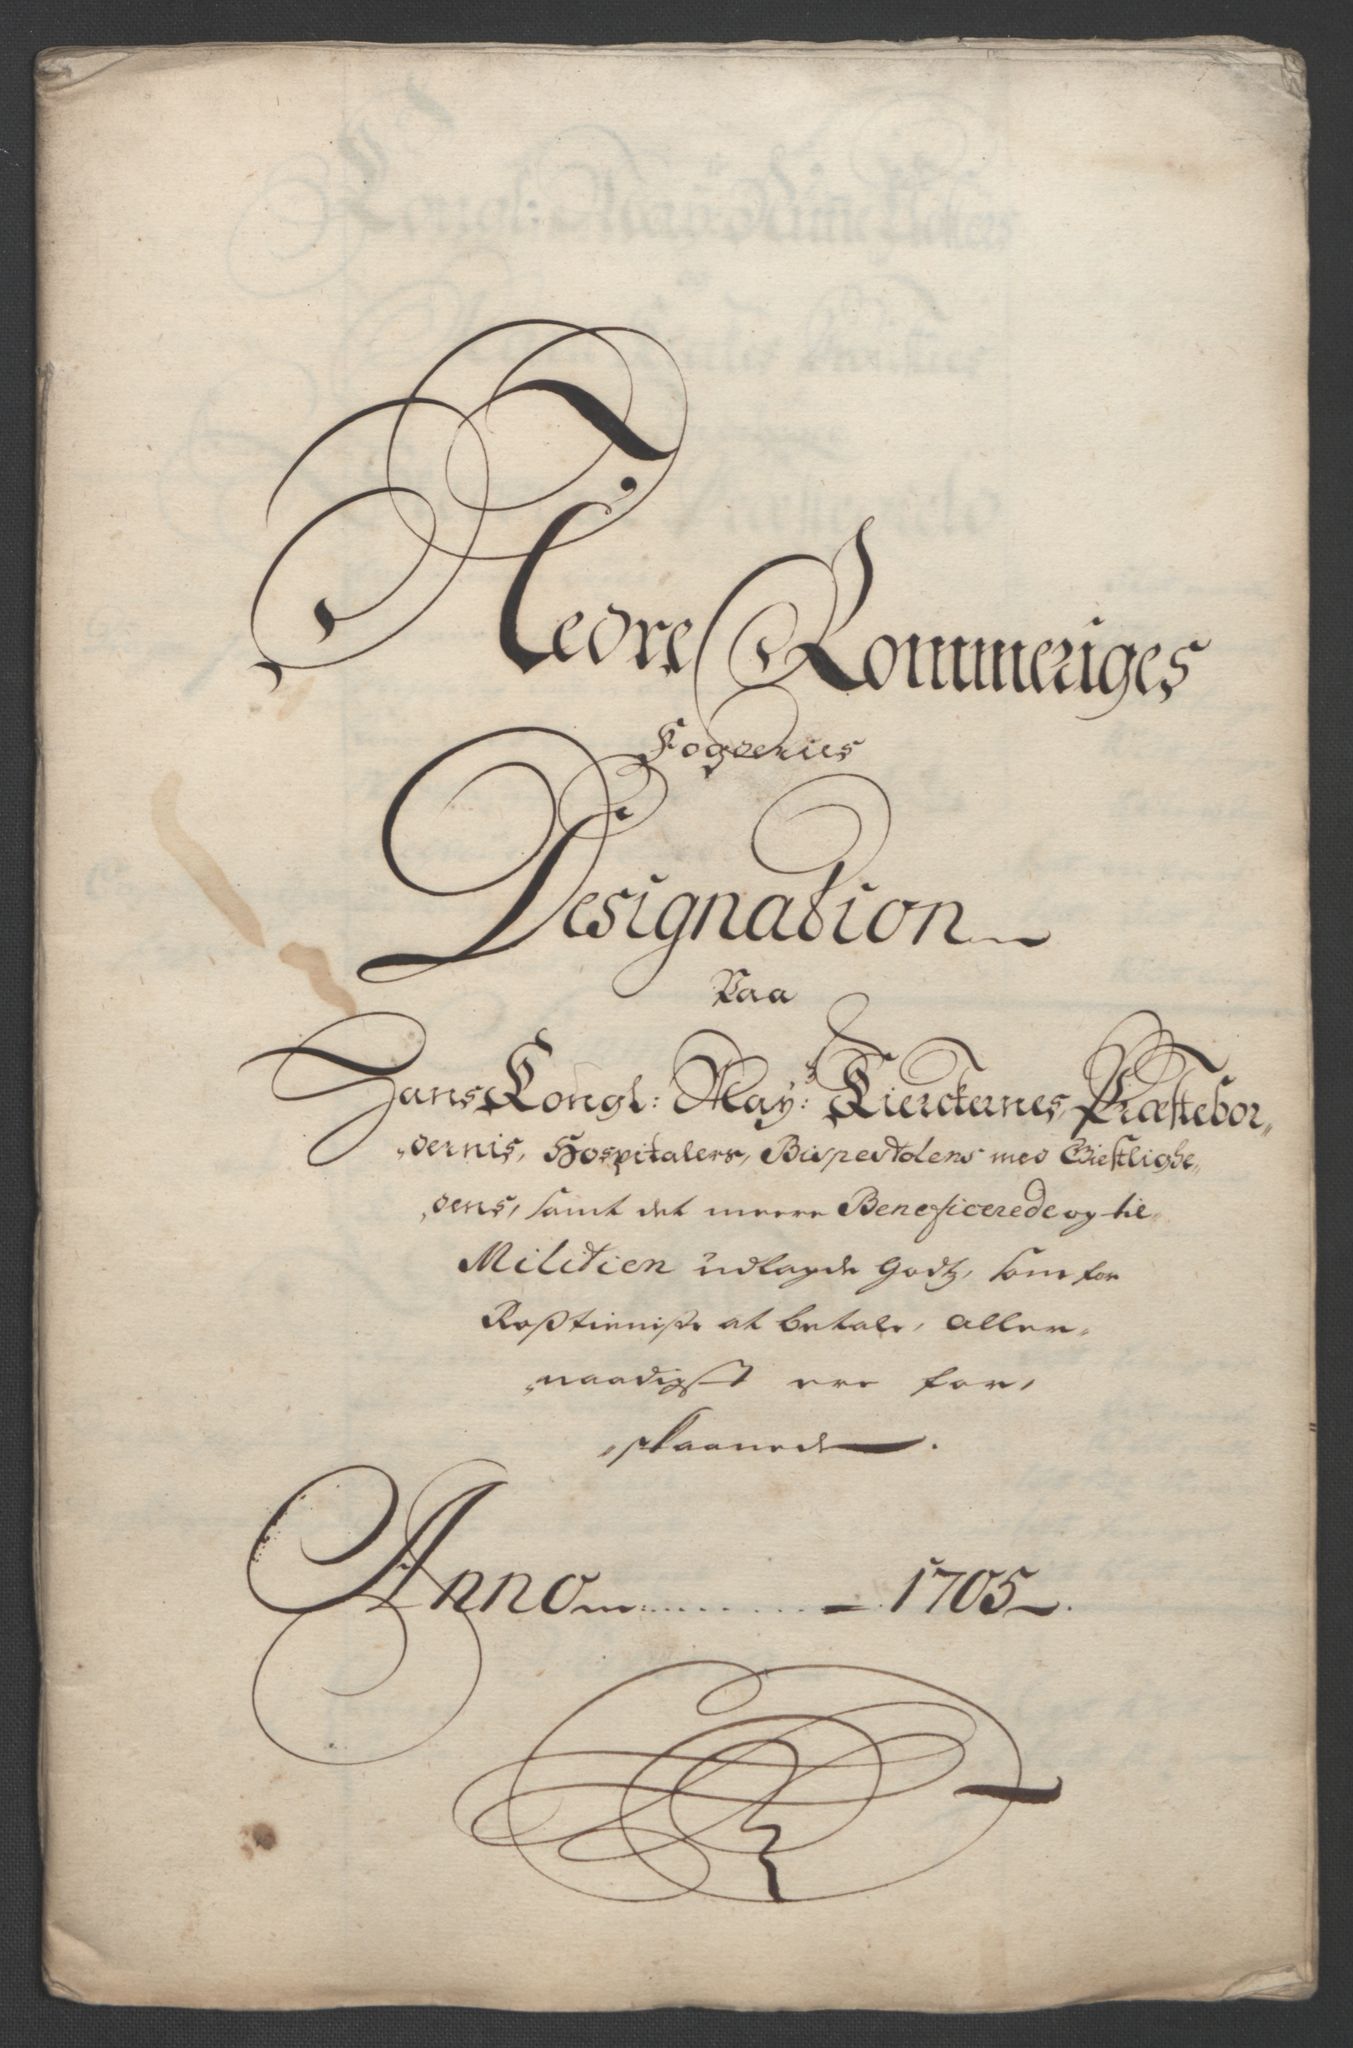 Nedre Rommeriges
Fogderies
Designation
Paa
Hans Kongl: May:s Kierckernes, Præstebor„
„dernis, Hospitalers, Bispestolens med Giestlighe„
„dens, samt det meere Beneficerede og til
Militien udlagde Godtz, som for
Rosstienniste at betale, aller„
„naadigst ere for„
„skaanede.
Anno 1705.